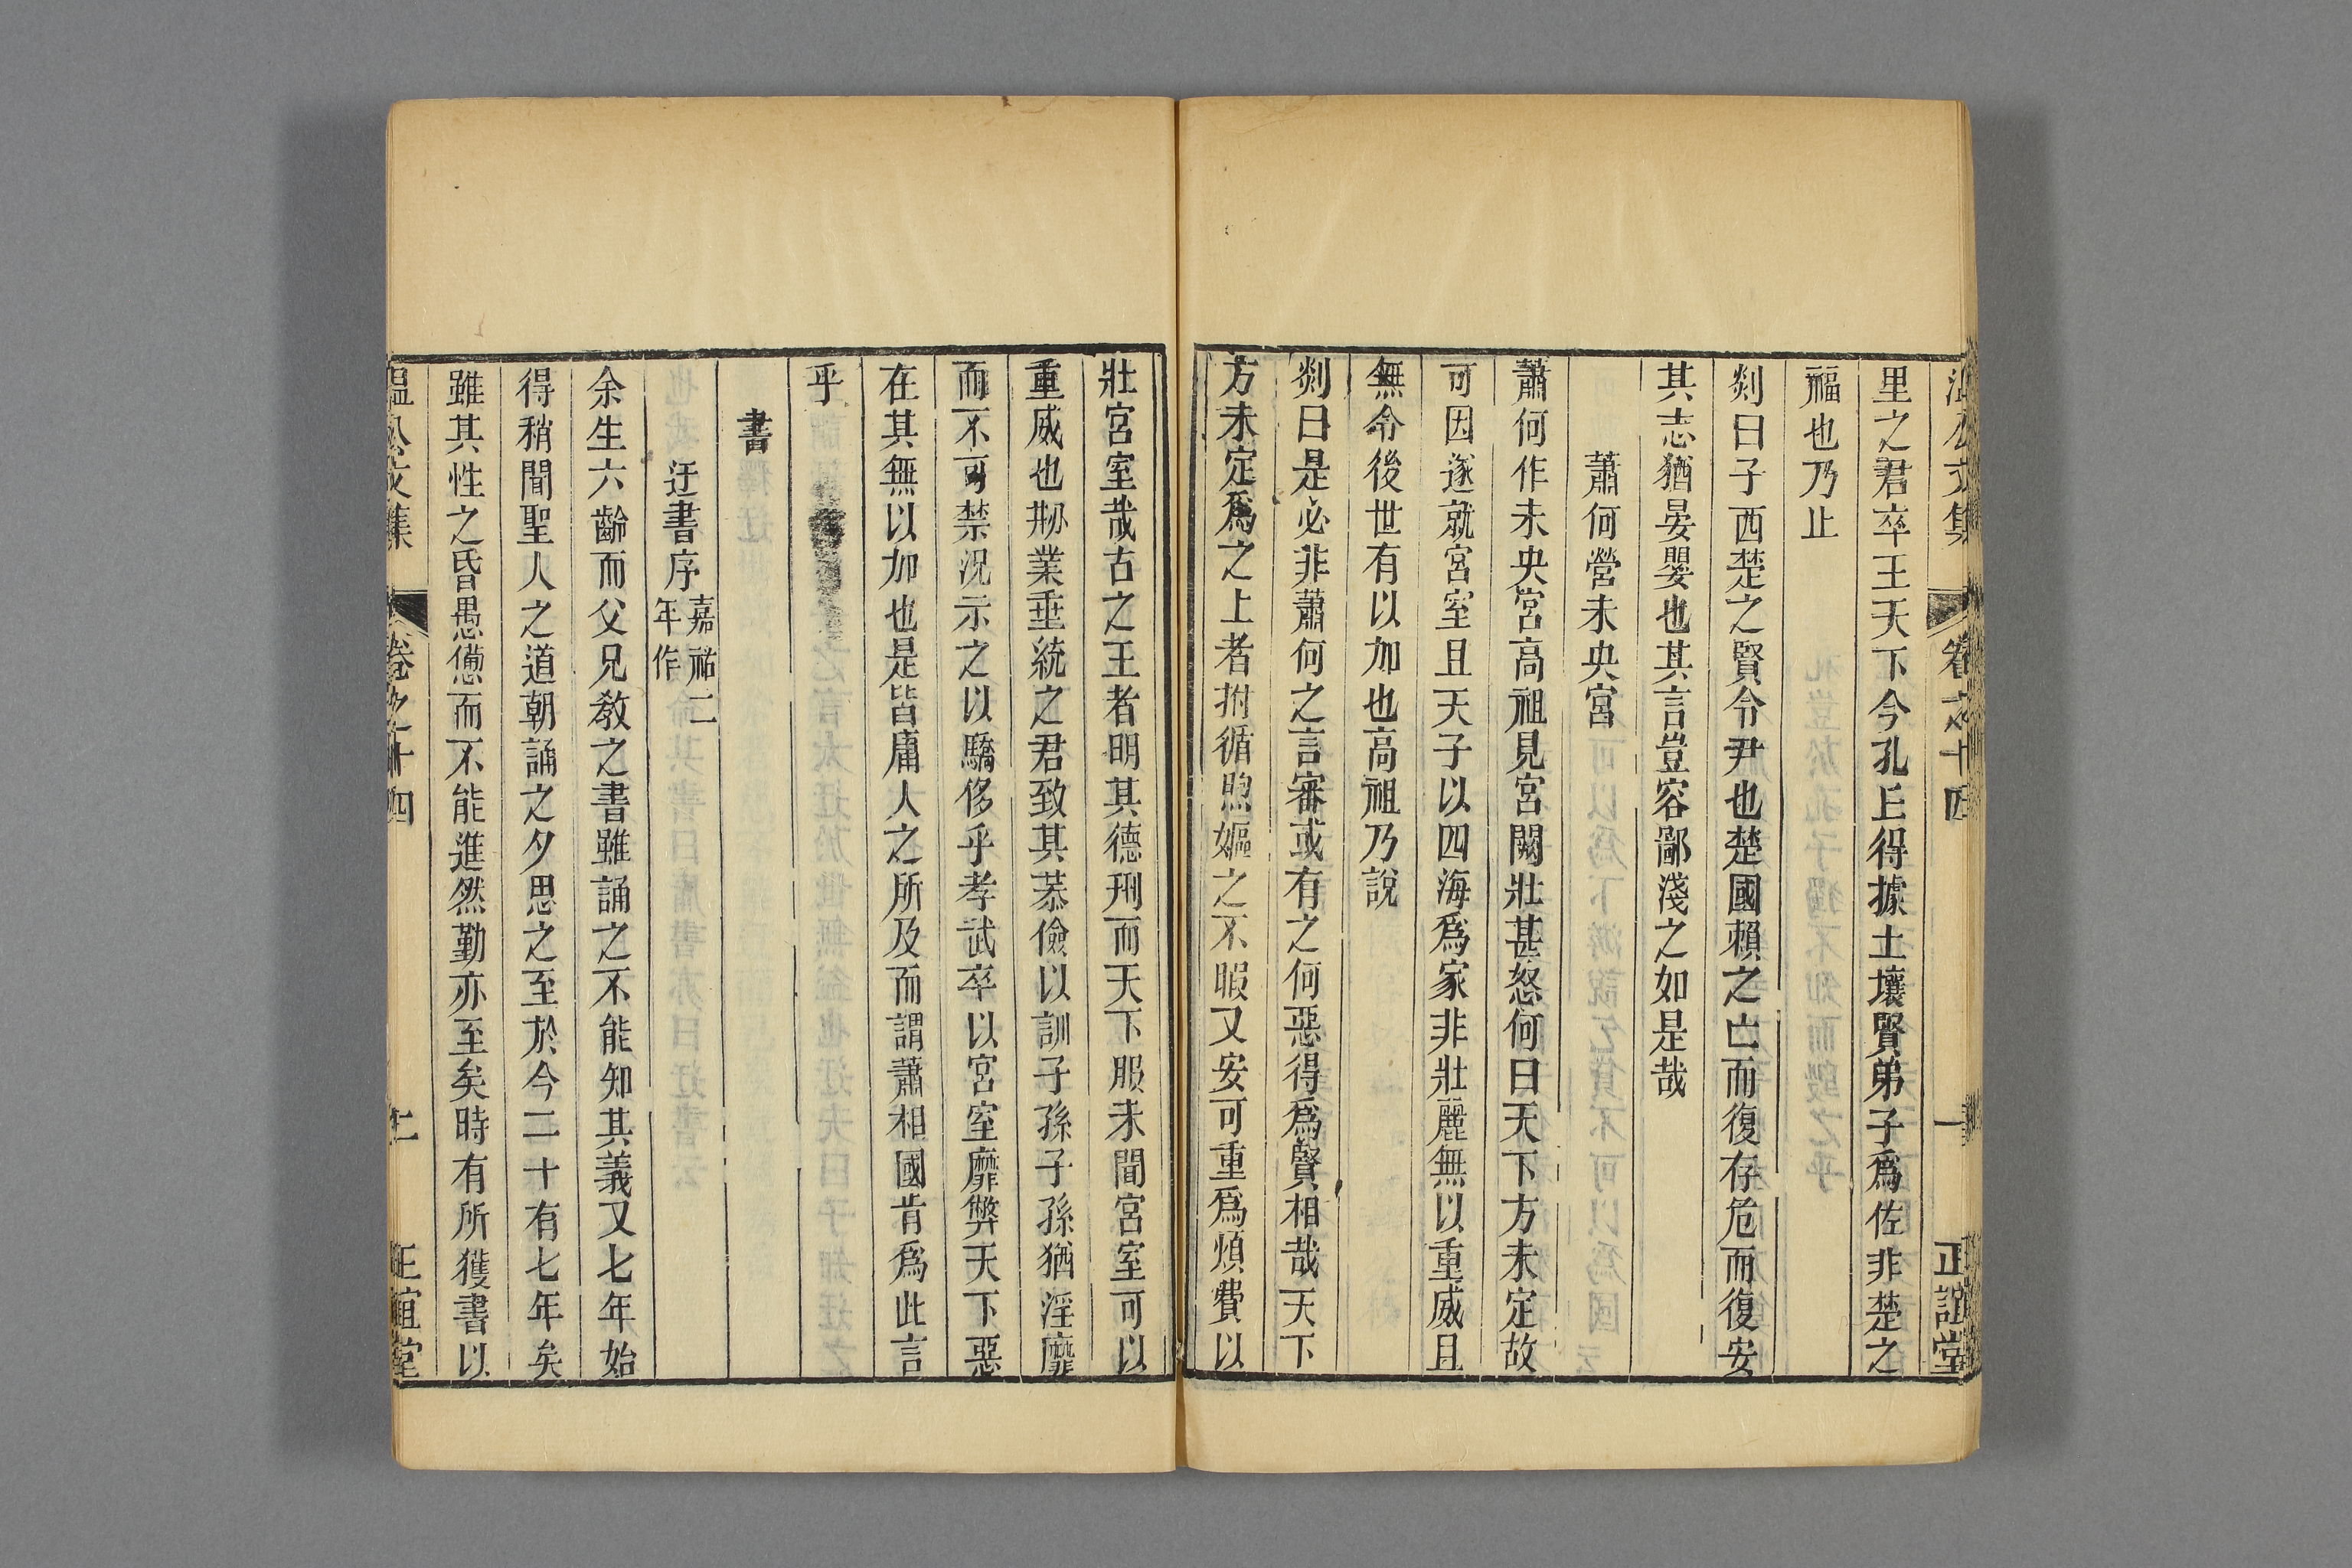 溫公文集
卷之十四
一
正誼堂
里之君卒王天下今孔丘得據土壤賢弟子爲佐非楚之
福也乃止
剡曰子西楚之賢令尹也楚國賴之亡而復存危而復安
其志猶晏嬰也其言豈容鄙淺之如是哉
蕭何營未央宮
蕭何作未央宮高祖見宮闕壯甚怒何曰天下方未定故
可因遂就宮室且天子以四海爲家非壯麗無以重威且
無令後世有以加也高祖乃說
剡曰是必非蕭何之言審或有之何惡得爲賢相哉天下
方未定爲之上者拊循煦嫗之不暇又安可重爲煩費以
壯宮室哉古之王者明其德刑而天下服未聞宮室可以
重威也刱業垂統之君致其恭儉以訓子孫子孫猶淫靡
而不可禁況示之以驕侈乎孝武卒以宮室靡弊天下惡
在其無以加也是皆庸人之所及而謂蕭相國肯爲此言
乎
書
迂書序
嘉祐二
年作
余生六齡而父兄教之書雖誦之不能知其義又七年始
得稍聞聖人之道朝誦之夕思之至於今二十有七年矣
雖其性之昏愚憊而不能進然勤亦至矣時有所獲書以
溫公文集
卷之十四
二
正誼堂